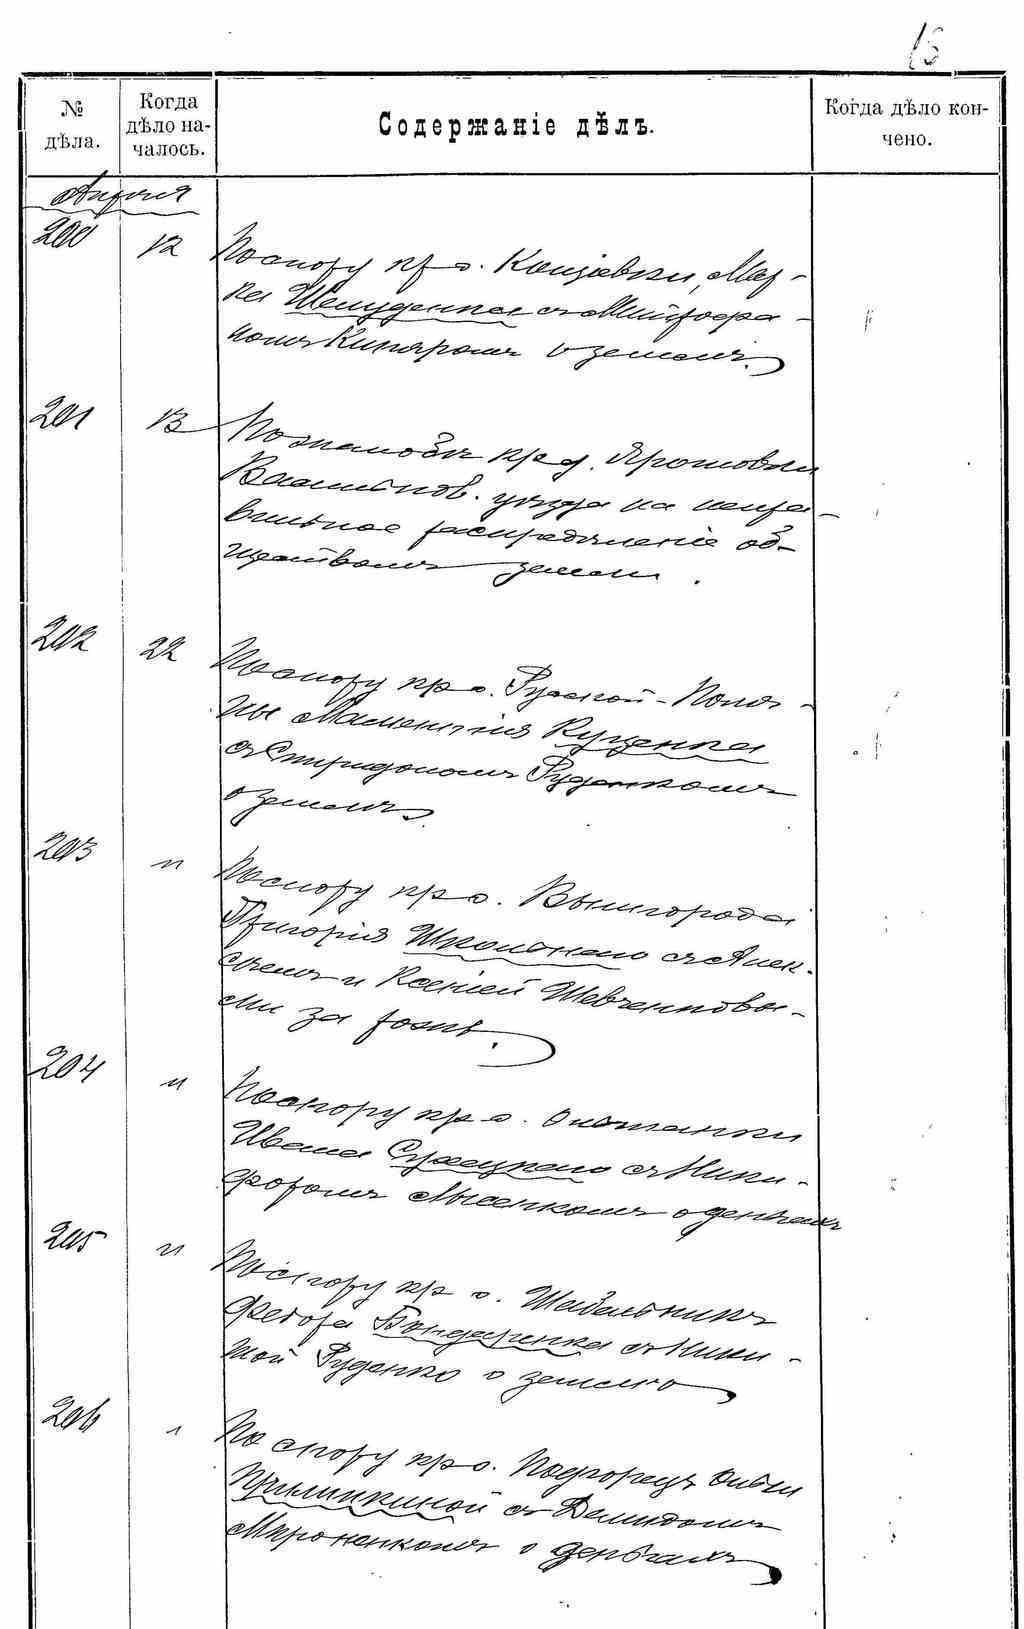 15
№ дѣла.
Когда дѣло началось.
Содержаніе дѣлъ.
Когда дѣло кончено.
Апрѣля
200 12 По спору кр с. Кощіевки, Мар-
ка Шелуденка съ Митрофа-
номъ о землѣ.
201 13 По жалобѣ кр д. Ярошовки
уѣзда на непра-
вильное распредѣленіе об-
ществомъ земли.
202 22 По спору кр с. Русской-Поля-
ны Куценка
съ Спиридономъ Руденкомъ
о землѣ.
203 " По спору кр с. Вышгорода
Григорія съ Алек-
сѣемъ и Ксеніей Шевченковы-
ми за
204 " По спору кр с.
Ивана съ Ники-
форомъ Лысенкомъ о деньгахъ
205 " По спору кр с. Шабельникъ
Федора Бондаренка съ Ники-
той Руденко о землю
206 " По спору кр с. Подгорецъ
съ Демидомъ
Мироненкомъ о деньгахъ